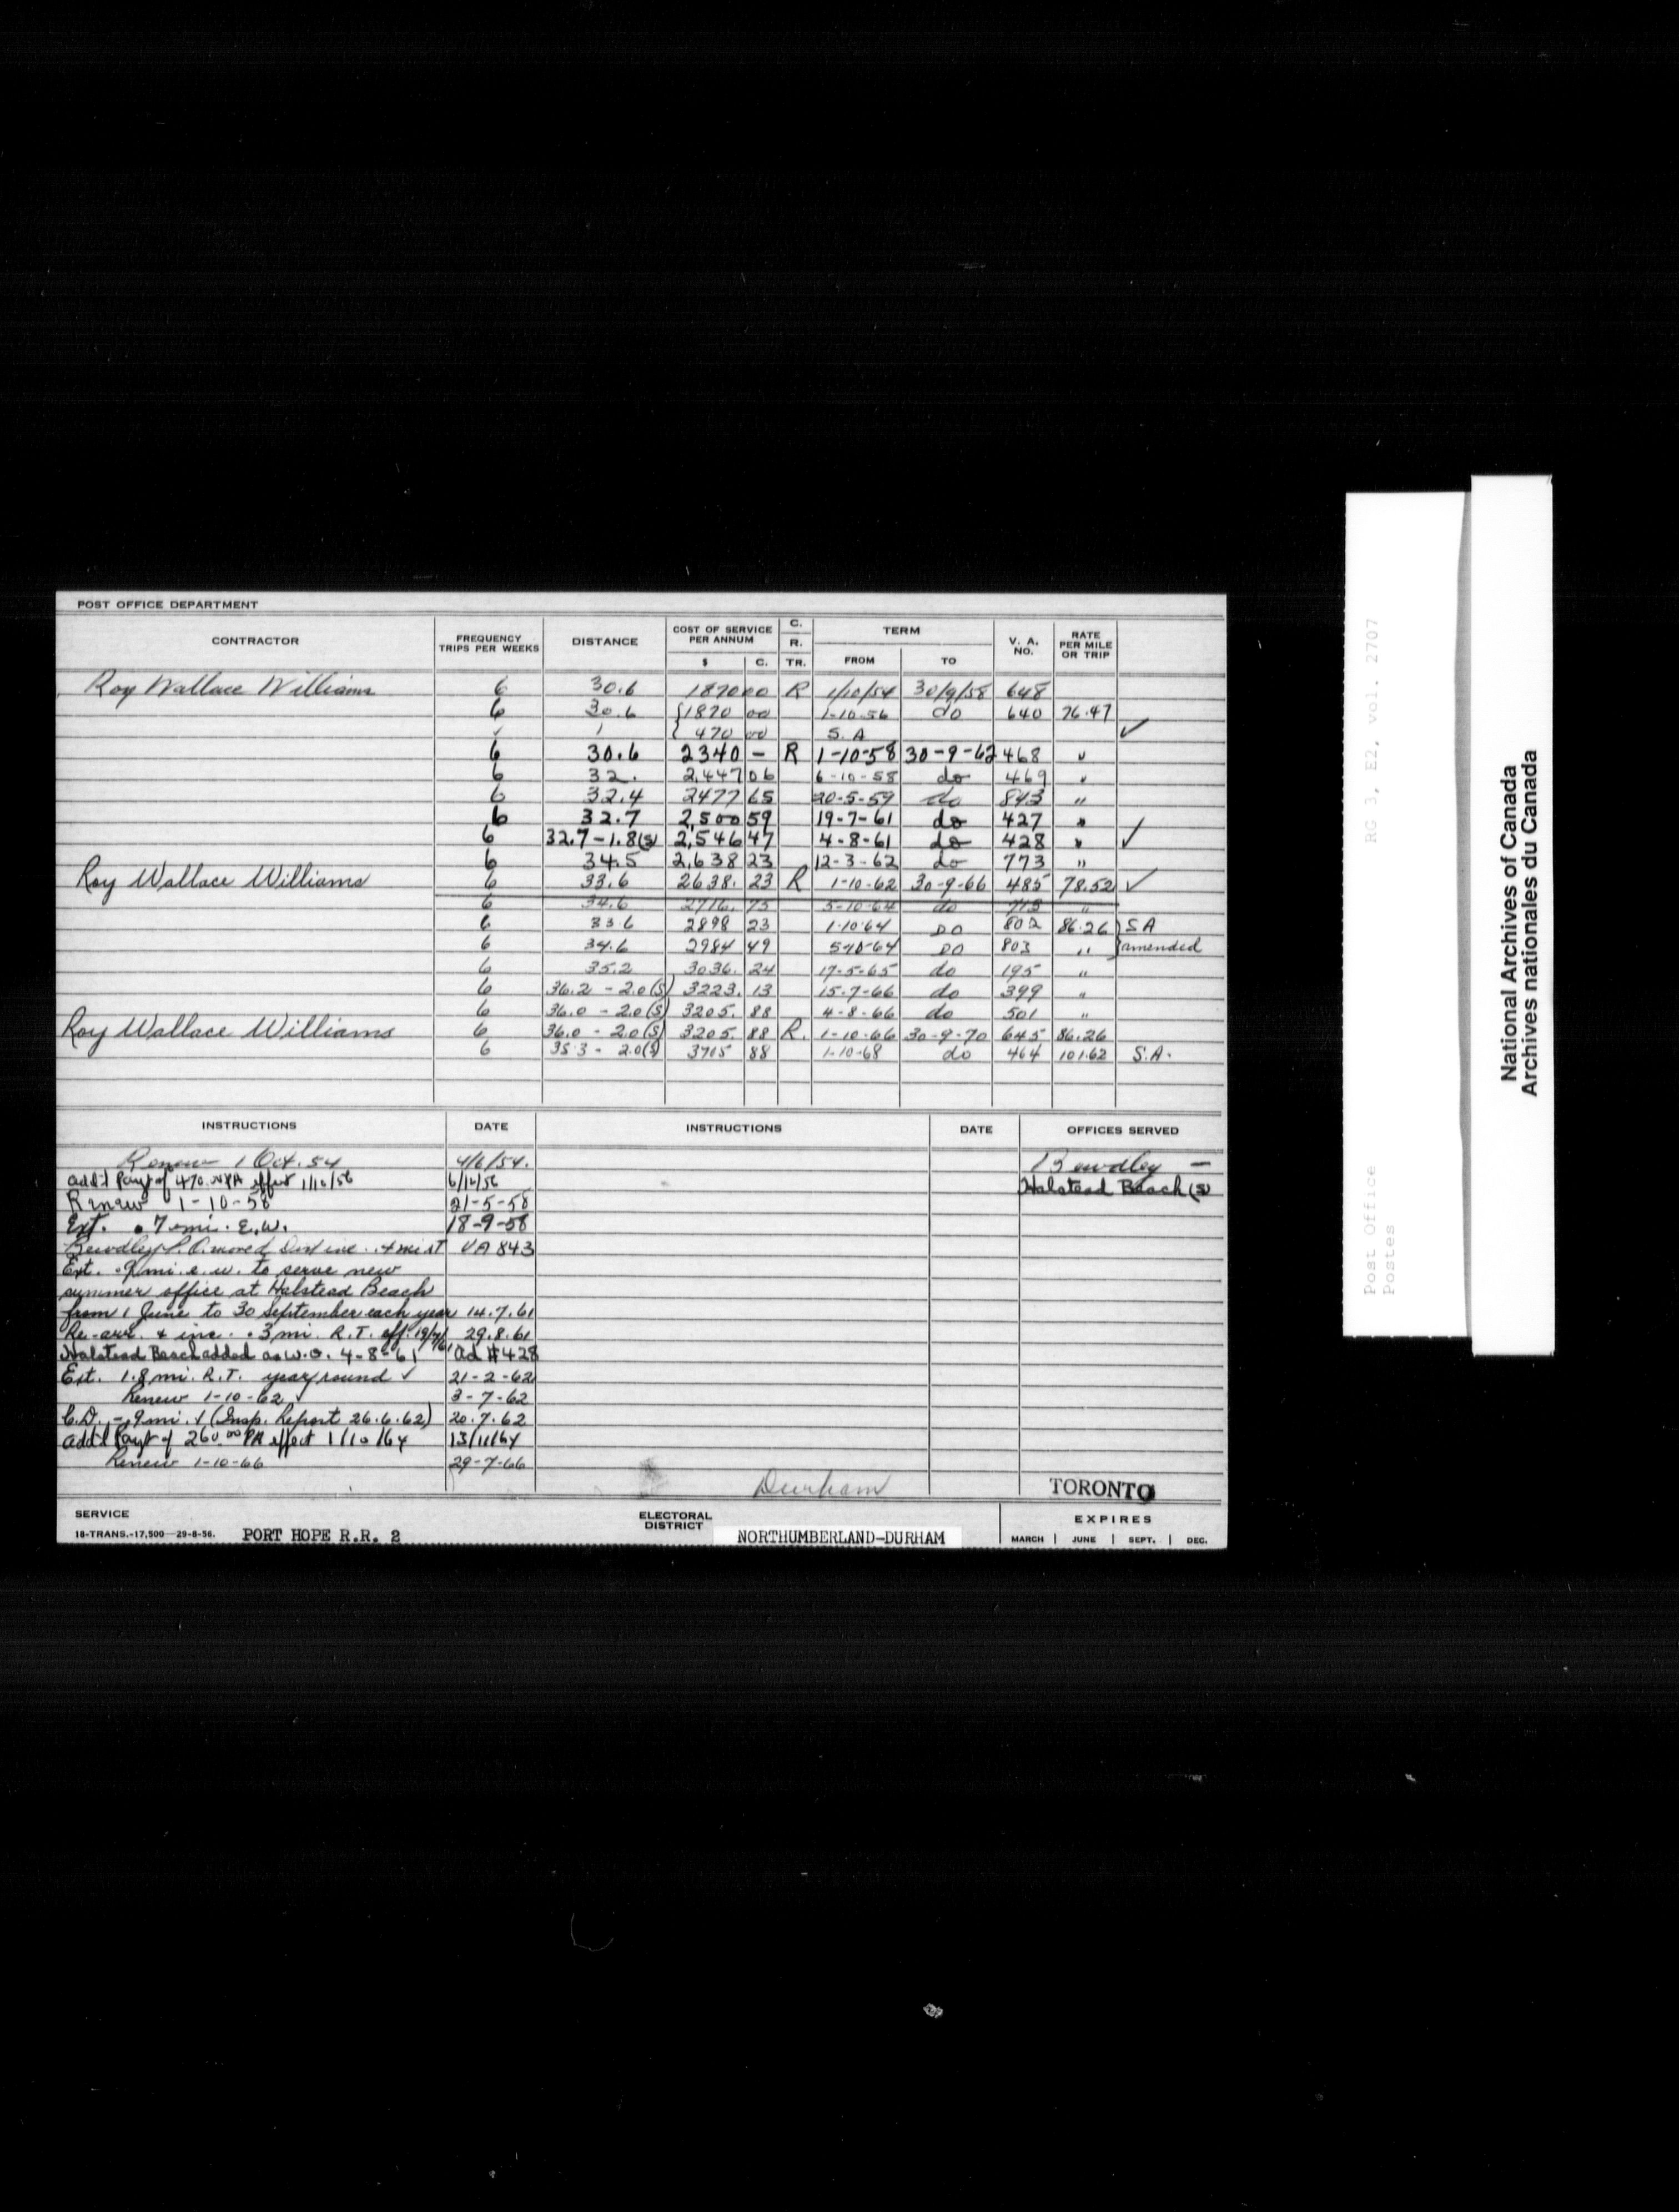 POST OFFICE DEPARTMENT
CONTRACTOR FREQUENCY TRIPS PER WEEKS DISTANCE COST OF SERVICE PER ANNUM $ C. C. R. TR. TERM FROM TO V. A. NO. RATE PER MILE OR TRIP
Roy Wallace Williams 6 30.6 1870 00 R 1/10/54 30/9/58 648
6 30.6 {1870 00 1-10-56 do 640 76.47
✓ 1 { 470 00 S. A ✓
6 30.6 2340 - R 1-10-58 30-9-62 468 "
6 32. 2,447 06 6-10-58 do 469 "
6 32.4 2477 65 20-5-59 do 843 "
6 32.7 2,500 59 19-7-61 do 427 "
6 32.7-1.8(s) 2,546 47 4-8-61 do 428 " ✓
6 34.5 2,638 23 12-3-62 do 773 "
Roy Wallace Williams 6 33.6 2638. 23 R 1-10-62 30-9-66 485 78.52 ✓
6 34.6 2716. 75 5-10-64 do 715 "
6 33.6 2898 23 1-10-64 DO 802 86.26 } S A
6 34.6 2984 49 5-10-64 DO 803 " } amended
6 35.2 3036. 24 17-5-65 do 195 "
6 36.2 - 2.0(S) 3223. 13 15-7-66 do 399 "
6 36.0 - 2.0(S) 3205. 88 4-8-66 do 501 "
Roy Wallace Williams 6 36.0 - 2.0(S) 3205. 88 R. 1-10-66 30-9-70 645 86.26
6 35.3 - 2.0(s) 3705 88 1-10-68 do 464 101.62 S.A.
INSTRUCTIONS DATE INSTRUCTIONS DATE OFFICES SERVED
Renew 1 Oct. 54 4/6/54. Bewdley -
Add'l Payt of 470.00 PA effect 1/10/56 6/12/56 Halstead Beach (s)
Renew 1-10-58 21-5-58
Ext. .7 mi. E.W. 18-9-58
Bewdley P.O. moved Dist inc. .4 mi RT VA 843
Ext. .9 mi. e. w. to serve new
summer office at Halstead Beach
from 1 June to 30 September each year 14.7.61
Re-arr. & inc. .3 mi. R.T. eff. 19/7/61 29.8.61
Halstead Beach added as W.O. 4-8-61 Ad #428
Ext. 1.8 mi. R.T. year round ✓ 21-2-62
Renew 1-10-62 ✓ 3-7-62
C.D. -.9 mi. ✓ (Insp. Report 26.6.62) 20.7.62
Add'l Payt of 260.00 PA effect 1/10/64 13/11/64
Renew 1-10-66 29-7-66
Durham TORONTO
SERVICE ELECTORAL DISTRICT EXPIRES
18-TRANS.-17,500-29-8-56. PORT HOPE R.R. 2 NORTHUMBERLAND-DURHAM MARCH | JUNE | SEPT. | DEC.
RG 3, E2, vol. 2707
Post Office
Postes
National Archives of Canada
Archives nationales du Canada